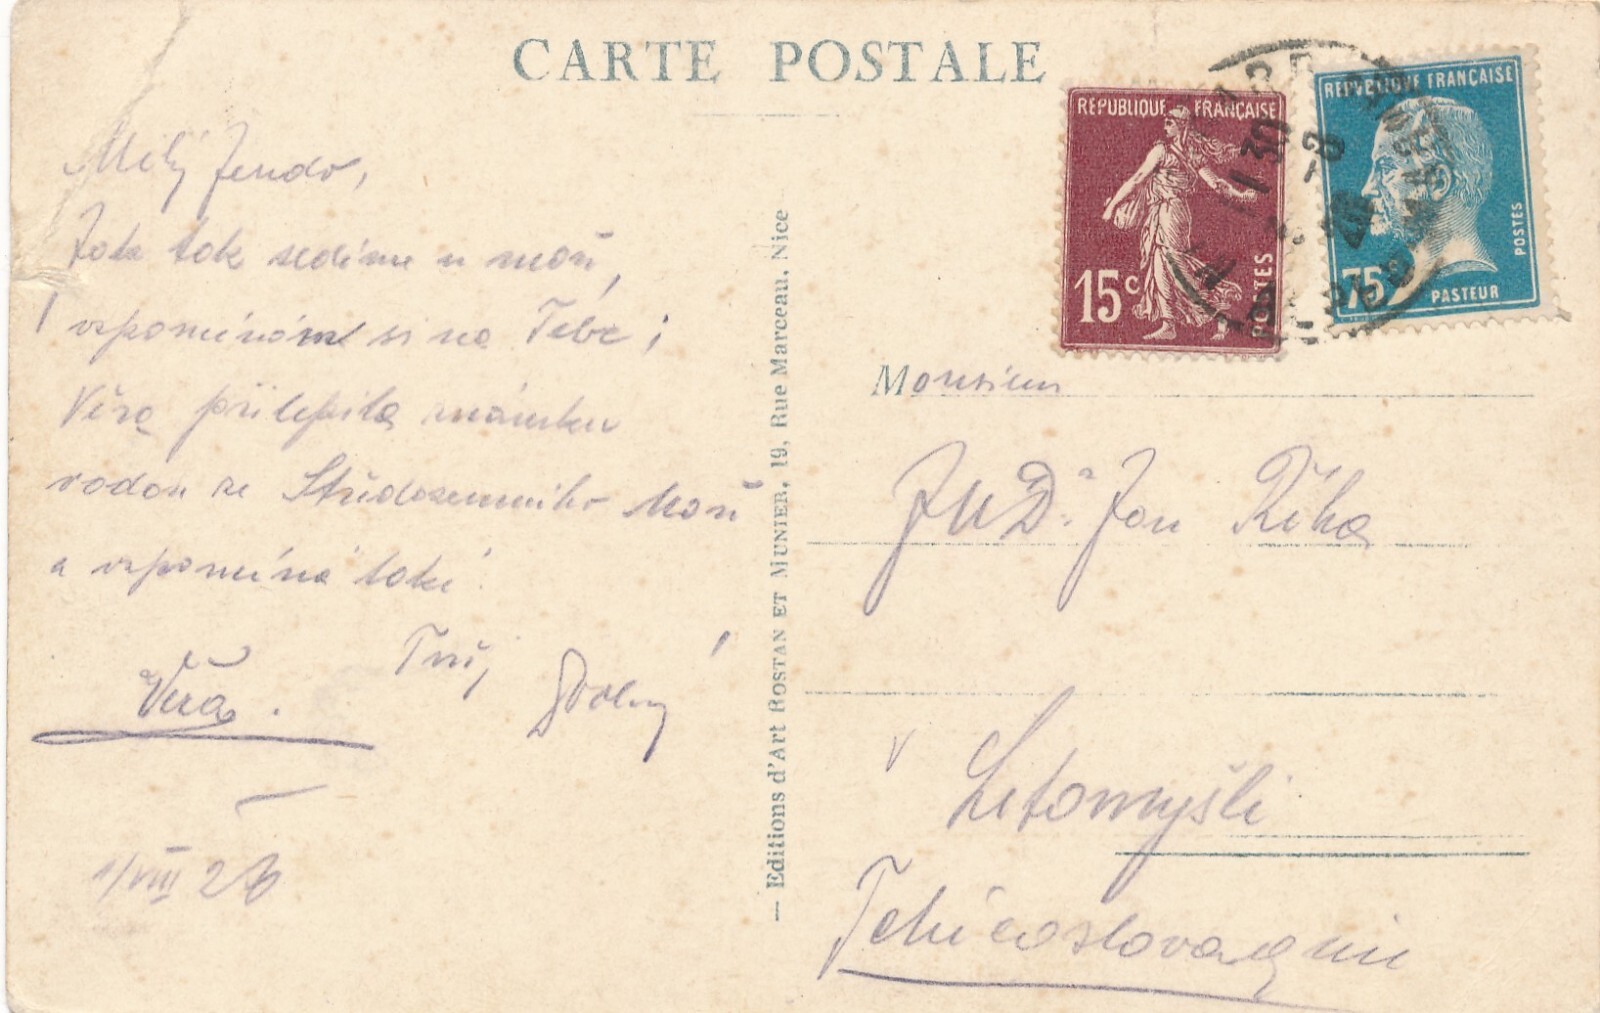 CARTE POSTALE
Milý Jendo,
Tak tak sedíme u moři,
vzpomínám si na Tebe i
Věra přilepila známku
vodou ze Středozemního Moři
a vzpomíná také.
Tvůj
Věra.
1/VIII 26
— Editions d'Art ROSTAN ET MUNIER, 19, Rue Marceau, Nice
REPUBLIQUE FRANÇAISE
15c
POSTES
REPUBLIQUE FRANÇAISE
75c
POSTES
PASTEUR
Monsieur
JUDr Jan Říha
v Litomyšli
Tchécoslovaquie